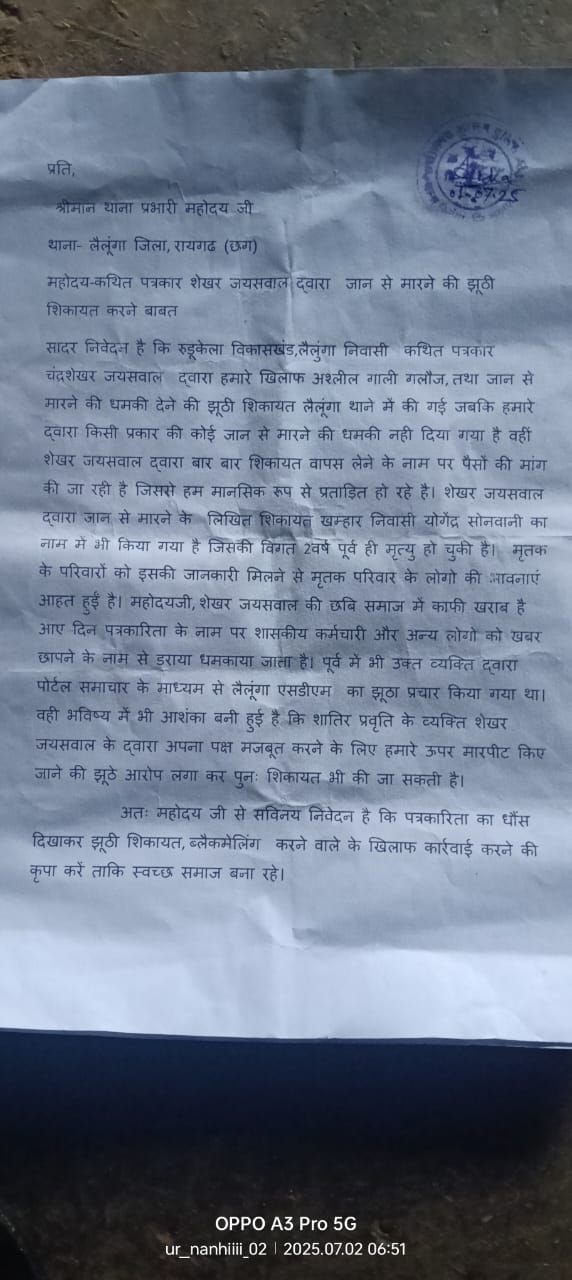 प्रति,
श्रीमान थाना प्रभारी महोदय जी
थाना- लैलूंगा जिला, रायगढ (छग)
महोदय-कथित पत्रकार शेखर जयसवाल द्वारा जान से मारने की झूठी
शिकायत करने बाबत
सादर निवेदन है कि रुडूकेला विकासखंड,लैलुंगा निवासी कथित पत्रकार
चंद्रशेखर जयसवाल द्वारा हमारे खिलाफ अश्लील गाली गलौज, तथा जान से
मारने की धमकी देने की झूठी शिकायत लैलूंगा थाने में की गई जबकि हमारे
द्वारा किसी प्रकार की कोई जान से मारने की धमकी नही दिया गया है वहीं
शेखर जयसवाल द्वारा बार बार शिकायत वापस लेने के नाम पर पैसों की मांग
की जा रही है जिससे हम मानसिक रूप से प्रताड़ित हो रहे है। शेखर जयसवाल
द्वारा जान से मारने के लिखित शिकायत खम्हार निवासी योगेंद्र सोनवानी का
नाम में भी किया गया है जिसकी विगत 2वर्ष पूर्व ही मृत्यु हो चुकी है। मृतक
के परिवारों को इसकी जानकारी मिलने से मृतक परिवार के लोगो की भावनाएं
आहत हुई है। महोदयजी, शेखर जयसवाल की छबि समाज में काफी खराब है
आए दिन पत्रकारिता के नाम पर शासकीय कर्मचारी और अन्य लोगो को खबर
छापने के नाम से डराया धमकाया जाता है। पूर्व में भी उक्त व्यक्ति द्वारा
पोर्टल समाचार के माध्यम से लैलूंगा एसडीएम का झूठा प्रचार किया गया था।
वही भविष्य में भी आशंका बनी हुई है कि शातिर प्रवृति के व्यक्ति शेखर
जयसवाल के द्वारा अपना पक्ष मजबूत करने के लिए हमारे ऊपर मारपीट किए
जाने की झूठे आरोप लगा कर पुनः शिकायत भी की जा सकती है।
अतः महोदय जी से सविनय निवेदन है कि पत्रकारिता का धौंस
दिखाकर झूठी शिकायत, ब्लैकमेलिंग करने वाले के खिलाफ कार्रवाई करने की
कृपा करें ताकि स्वच्छ समाज बना रहे।
OPPO A3 Pro 5G
ur_nanhiiii_02 | 2025.07.02 06:51